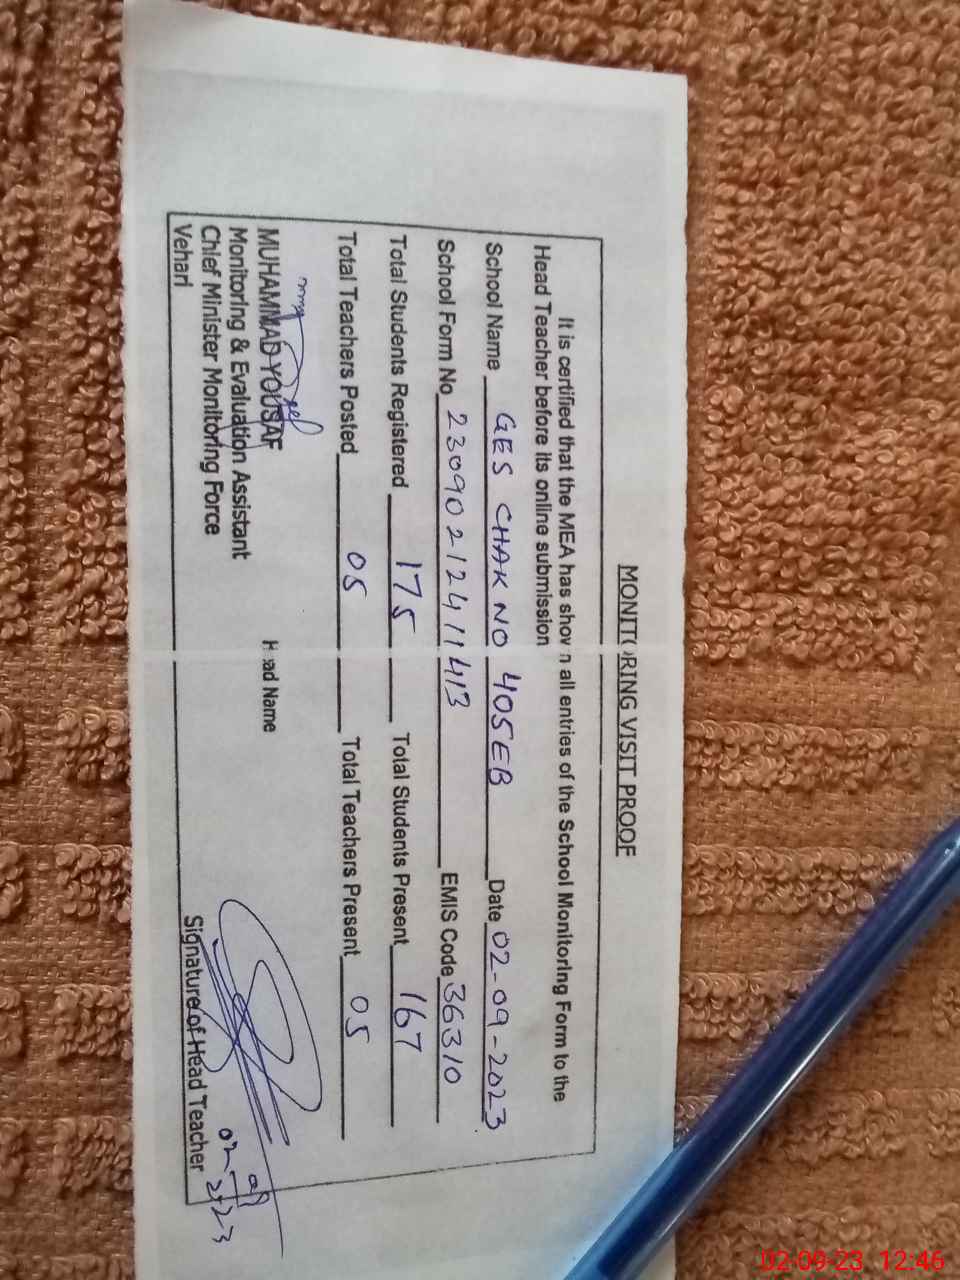 MONITORING VISIT PROOF
It is certified that the MEA has shown all entries of the School Monitoring Form to the
Head Teacher before its online submission
School Name GES CHAK NO 405EB Date 02-09-2023
School Form No 23090212411413 EMIS Code 36310
Total Students Registered 175 Total Students Present 167
Total Teachers Posted 05 Total Teachers Present 05
MUHAMMAD YOUSAF Head Name
Monitoring & Evaluation Assistant
Chief Minister Monitoring Force
Vehari Signature of Head Teacher
02-09-23 12:46